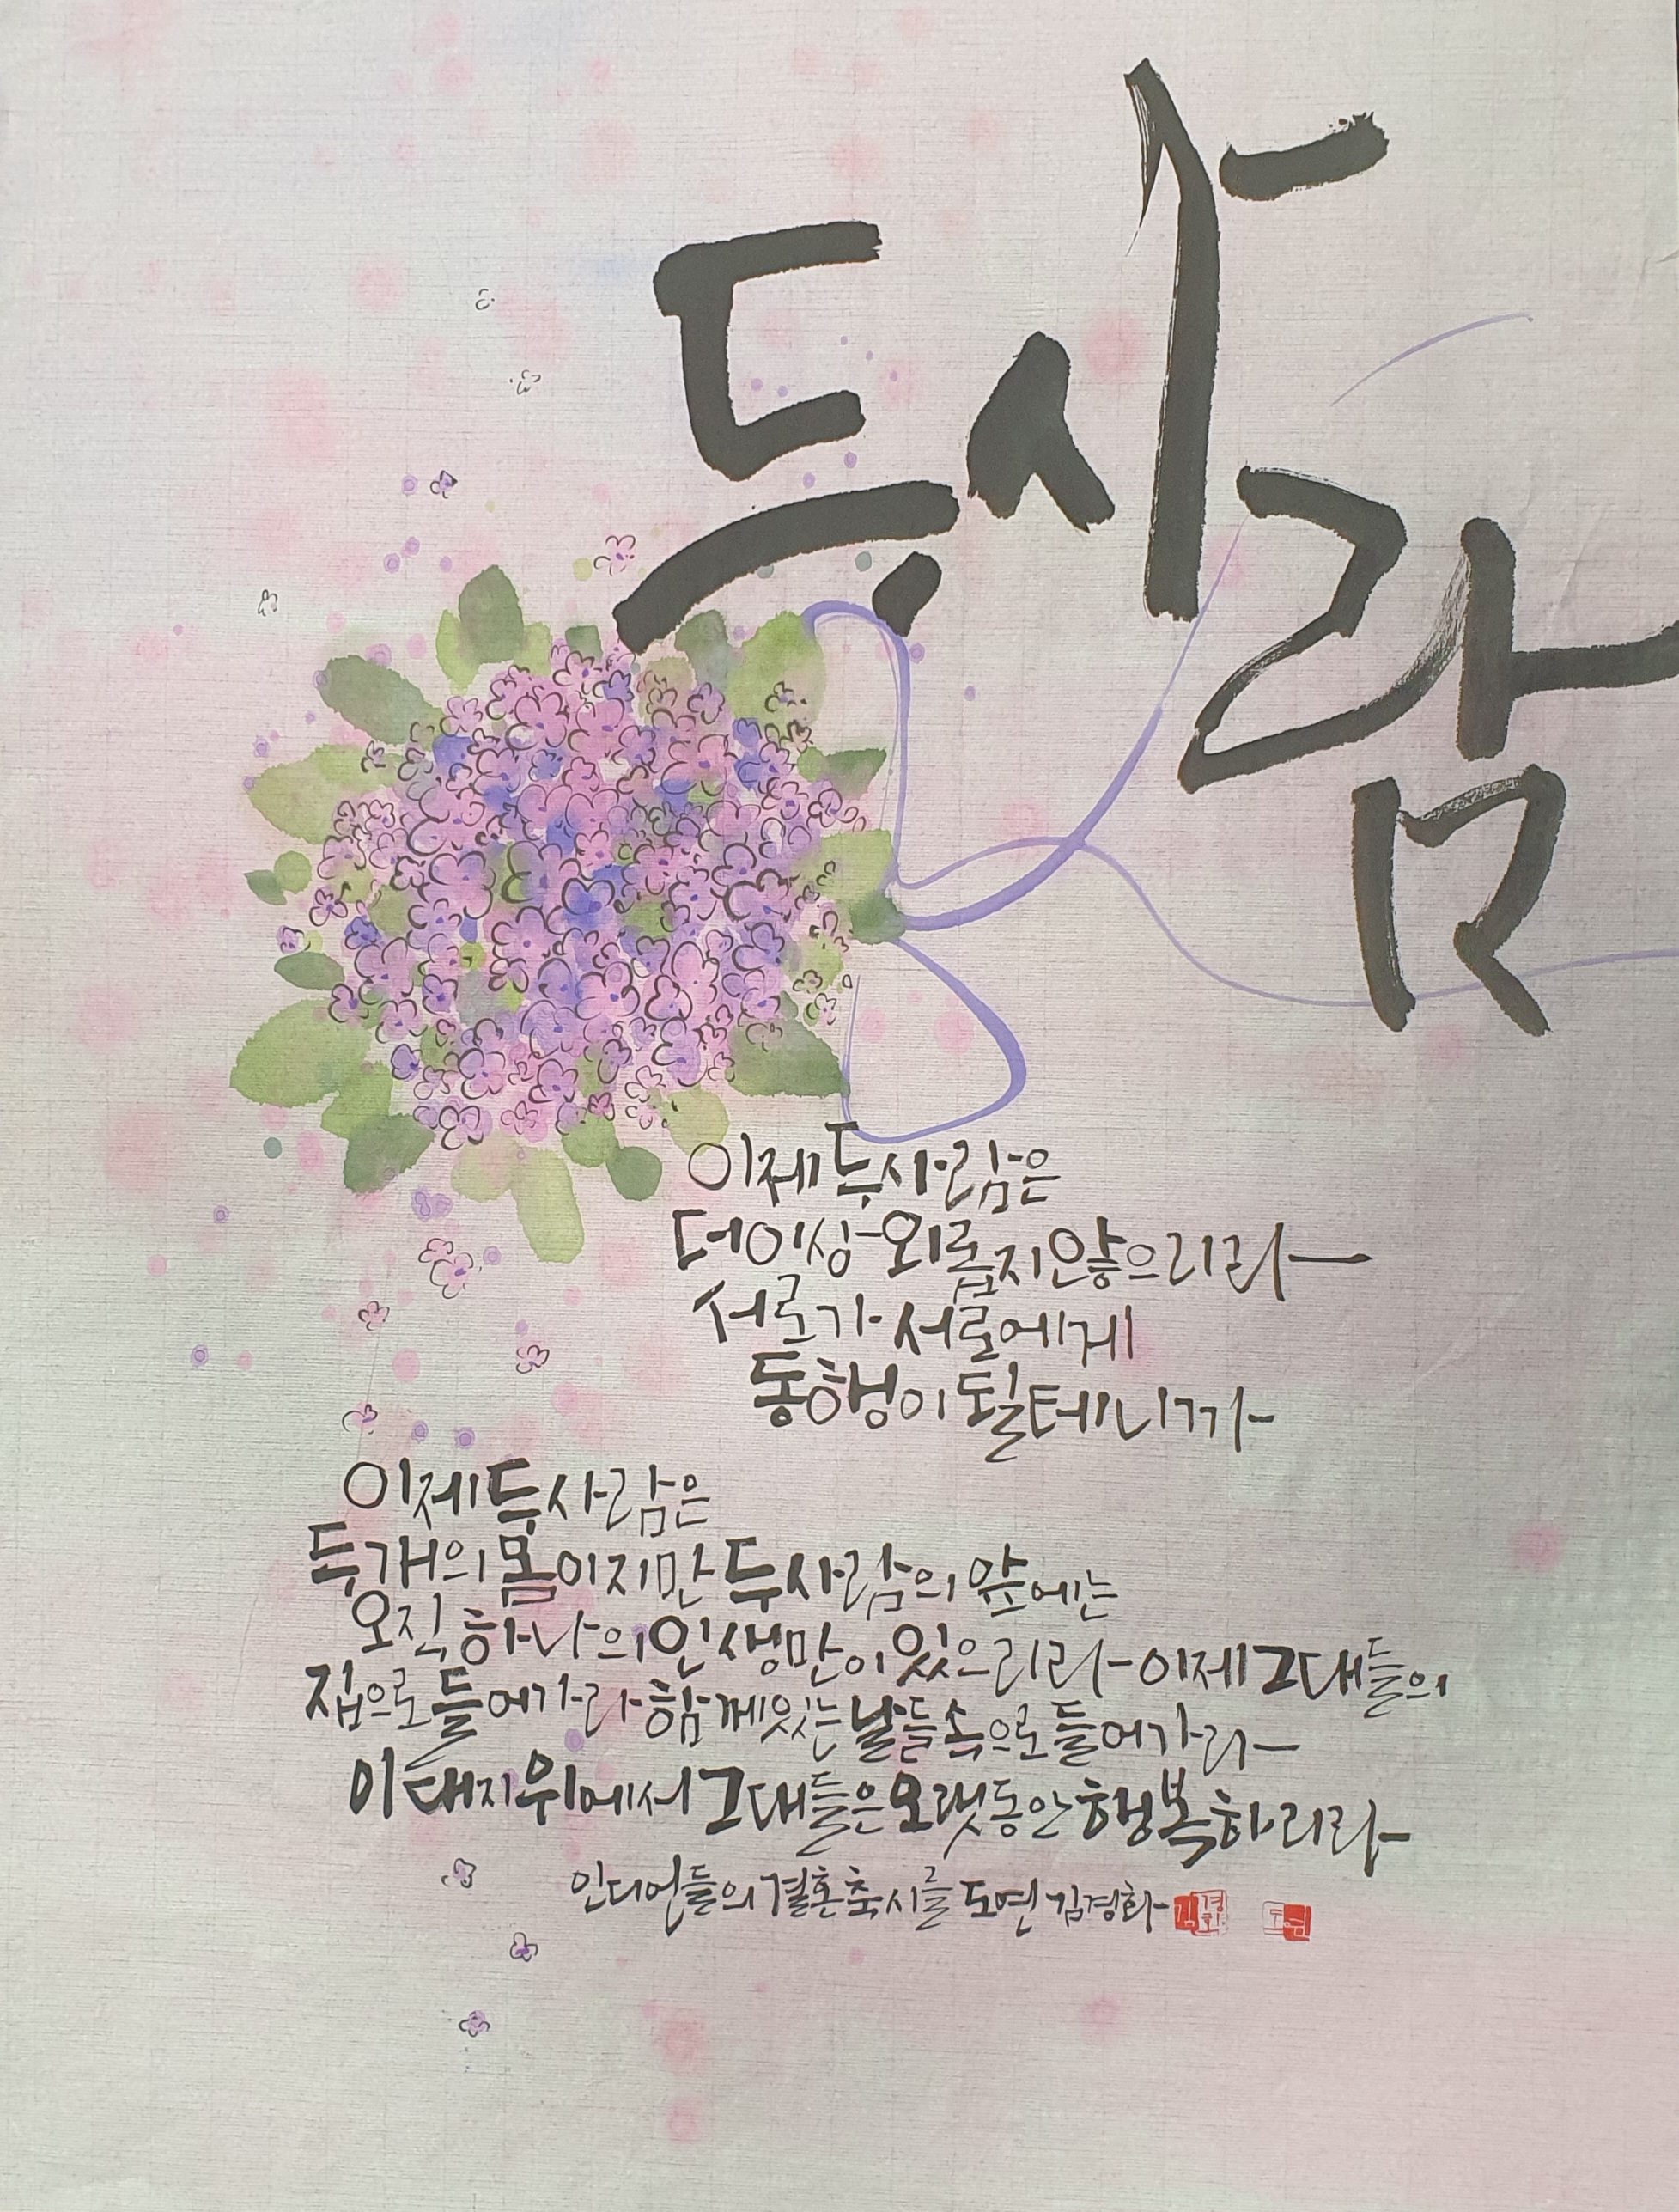 두 사람
이제 두 사람은
더 이상 외롭지 않으리라
서로가 서로에게
동행이 될테니까
이제 두 사람은
두 개의 몸이지만 두 사람의 앞에는
오직 하나의 인생만이 있으리라 이제 그대들의
집으로 들어가라 함께 있는 날들 속으로 들어가라
이 대지 위에서 그대들은 오랫동안 행복하리라
인디언들의 결혼 축시를 도연 김경화
김경화 도연